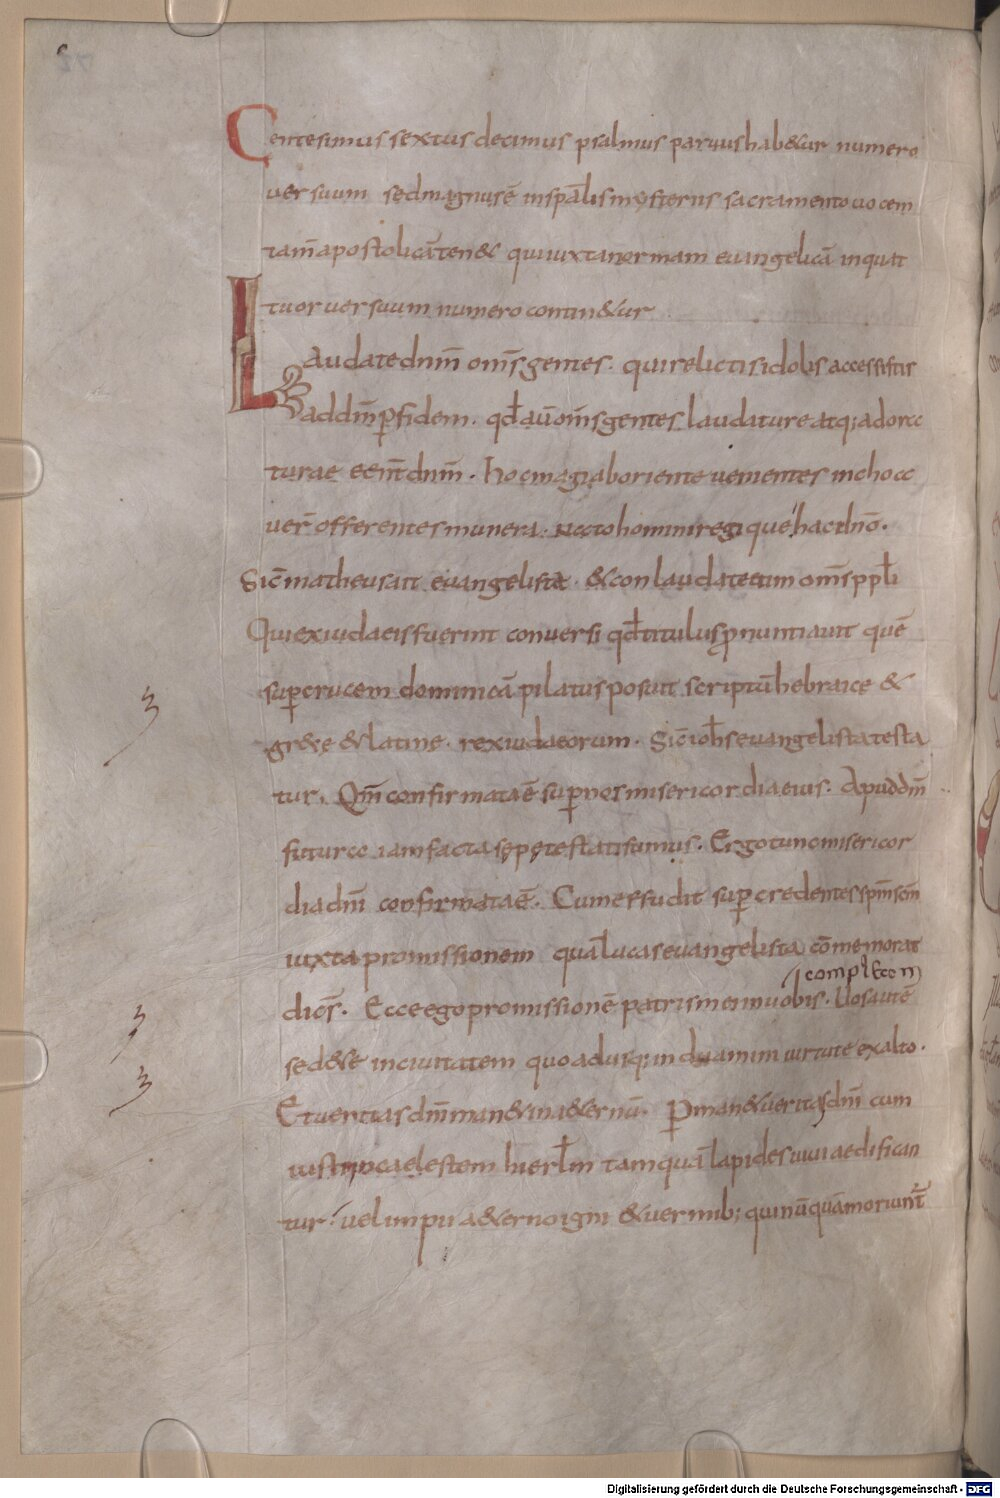 Centesimus sextus decimus psalmus paruus hab&ur numero
uersuum sed magnus ē in sp̄alis mysteriis sacramento uocem
tam̄ apostolicā ten& qui iuxta normam euangelicā in quat
tuor uersuum numero contin&ur
Laudate dnm̄ om̄s gentes. qui relictis idolis accessistis
ad dm̄ p fidem. qđ aū om̄s gentes laudaturae atq; adora
turae eēnt dnm̄. hoc magi ab oriente uenientes inchoa
uer̄ offerentes munera. nato homini regi que hac dn̄o.
Sic̄ matheus ait euangelista. & conlaudate eum om̄s ppl̄i
Qui ex iudaeis fuerint conuersi qđ titulus pnuntiauit quē
sup crucem dominicā pilatus posuit scriptū hebraice &
gr&ę & latinę. rex iudaeorum. Sic̄ ioh̄s euangelista testa
tur. Qm̄ confirmata ē sup nos misericordia eius. Apud dm̄
futura iam facta sępę testati sumus. Ergo tunc misericor
dia dni confirmata ē. Cum effudit sup credentes spm̄ scm̄
iuxta promissionem quā lucas euangelista cōmemorat
dicēs. Ecce ego promissionē patris mei in uobis. Uos autē
sed&e in ciuitatem quo adusq; induamini uirtute ex alto.
Et ueritas dni man& in a&ernū. Pman& ueritas dni cum
iusti in caelestem hierl̄m tamquā lapides uiui aedifican
tur. uel impii a&erno igni & uermib; qui nūquā moriunt̄